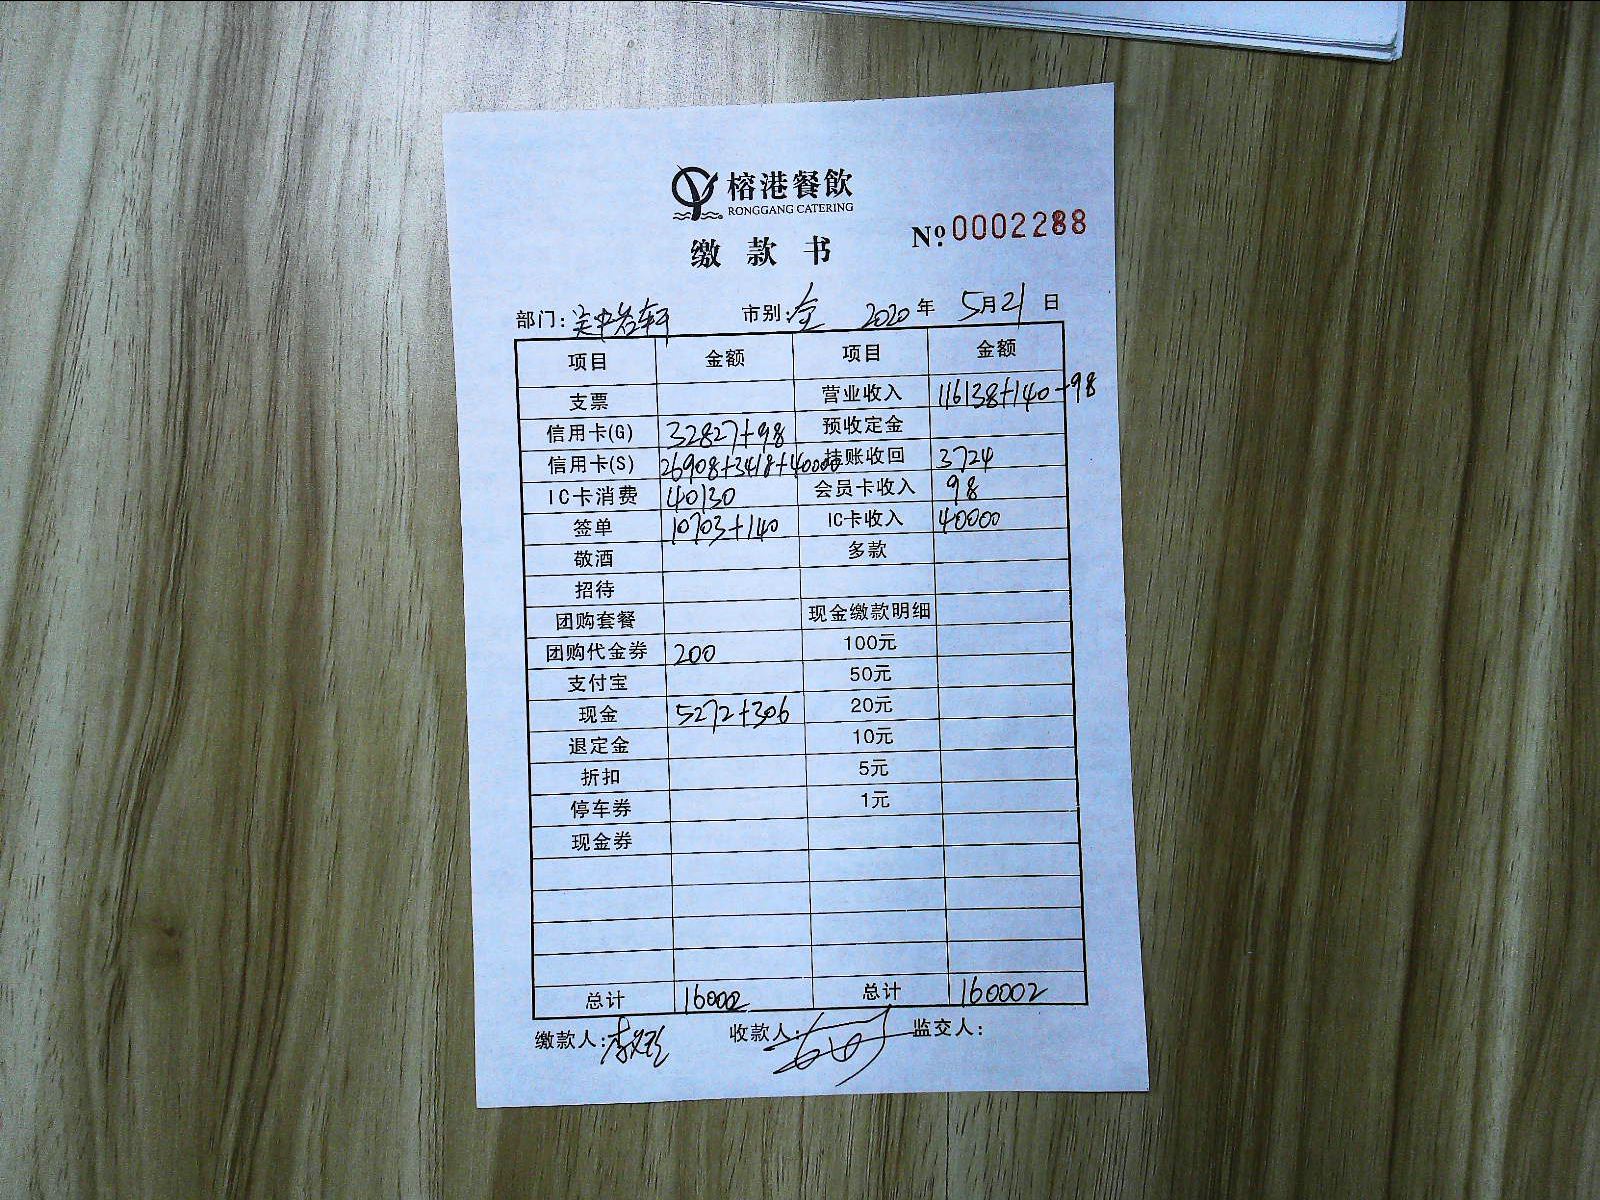 榕港餐飲
RONGGANG CATERING
缴款书
№ 0002288
部门: 市别:全 2020年 5月21日
项目 金额 项目 金额
支票 营业收入 116138+140-98
信用卡(G) 32827+98 预收定金
信用卡(S) 26908+3418+40000 挂账收回 3724
IC卡消费 40130 会员卡收入 98
签单 10703+140 IC卡收入 40000
敬酒 多款
招待
团购套餐 现金缴款明细
团购代金券 200 100元
支付宝 50元
现金 5272+306 20元
退定金 10元
折扣 5元
停车券 1元
现金券
总计 160002 总计 160002
缴款人: 收款人: 监交人: